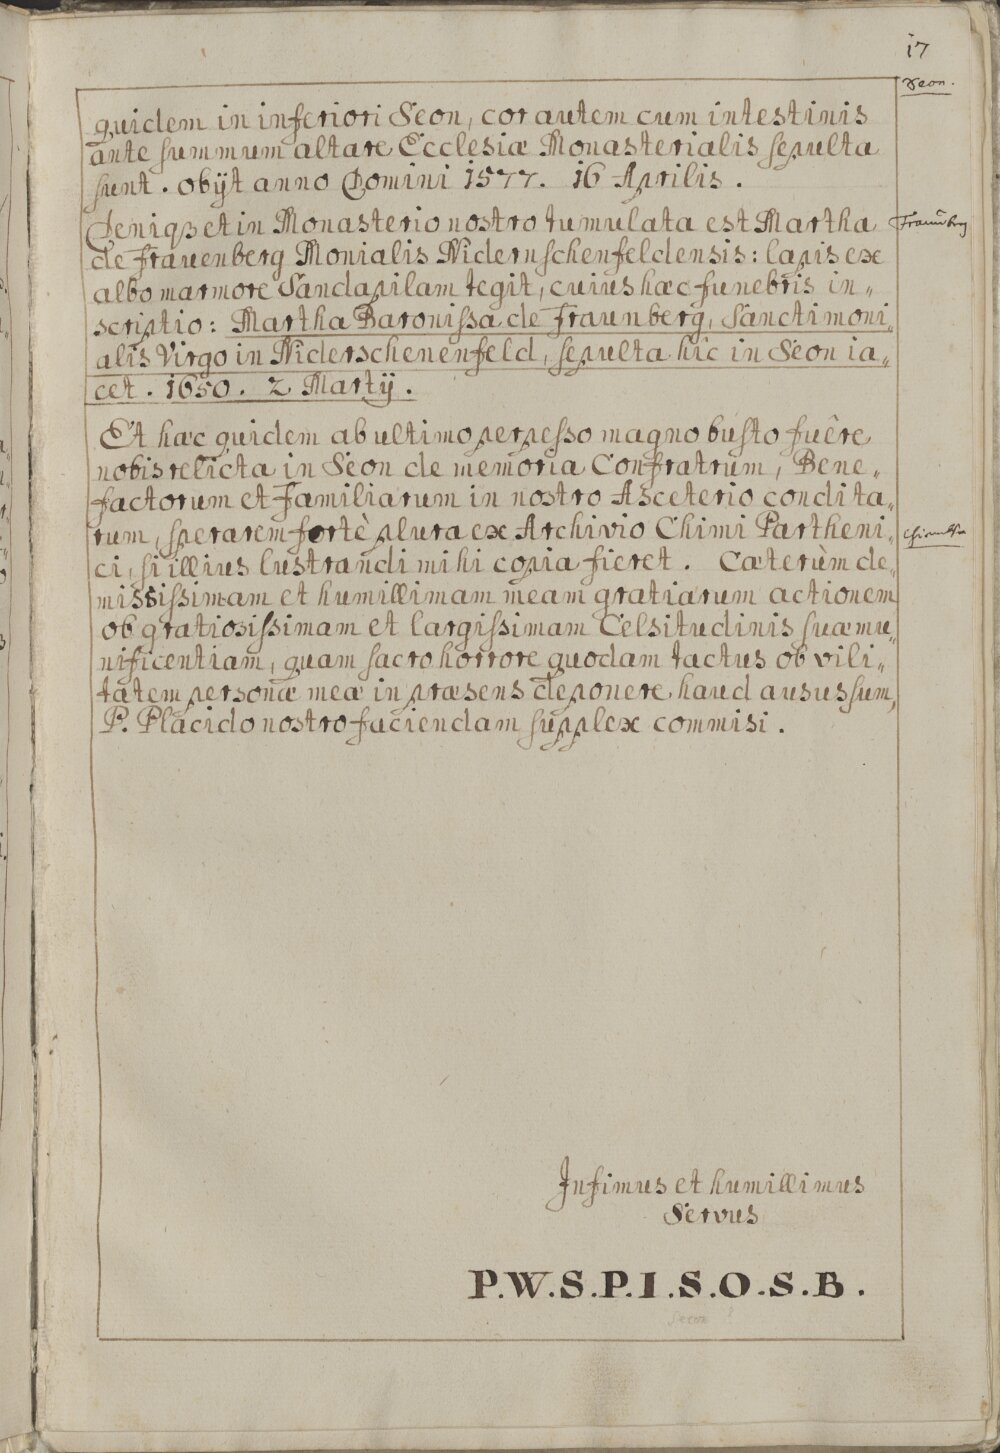 17
Seon.
quidem in inferiori Seon, cor autem cum intestinis
ante summum altare Ecclesiæ Monasterialis sepulta
sunt. obijt anno Domini 1577. 16 Aprilis.
Deniqз et in Monasterio nostro tumulata est Martha
de Frauenberg Monialis Nidernschenfeldensis: lapis ex
albo marmore Sandapilam tegit, cuius hæc funebris in„
scriptio: Martha Baronissa de Fraunberg, Sanctimoni„
alis Virgo in Niderschenenfeld, sepulta hîc in Seon ia„
cet. 1650. 2 Martij.
Et hæc quidem ab ultimo perpesso magno busto fuêre
nobis relicta in Seon de memoria Confratrum, Bene„
factorum et Familiarum in nostro Asceterio condita„
rum, sperarem fortè plura ex Archivio Chimi Partheni„
ci, si illius lustrandi mihi copia fieret. Cæterùm de„
missisimam et humillimam meam gratiarum actionem
ob gratiosissimam et largissimam Celsitudinis suæ mu„
nificentiam, quam sacro horrore quodam tactus ob vili„
tatem personæ meæ in præsens deponere haud ausus sum,
P. Placido nostro faciendam supplex commisi.
Infimus et humillimus
Servus
P.W.S.P.I.S.O.S.B.